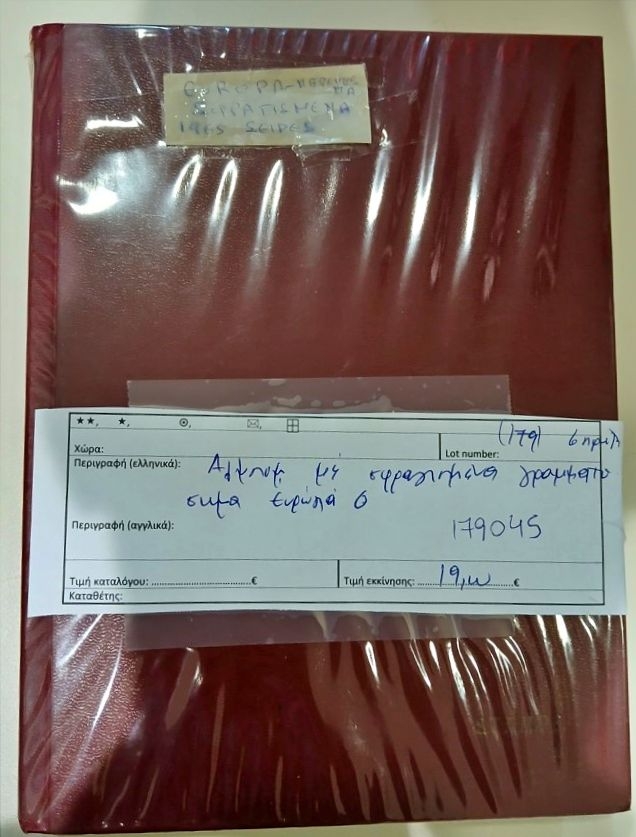 EUROPA-
ΣΦΡΑΓΙΣΜΕΝΑ
1965 SEIDES
★★, ★, ⊙, ✉, ⊞
(179)
Χώρα:
Lot number:
Περιγραφή (ελληνικά): Αλμπουμ με σφραγισμένα γραμματο
σημα Ευρώπά
Περιγραφή (αγγλικά): 179045
Τιμή καταλόγου: ....................................€
Τιμή εκκίνησης: ........19,........€
Καταθέτης: